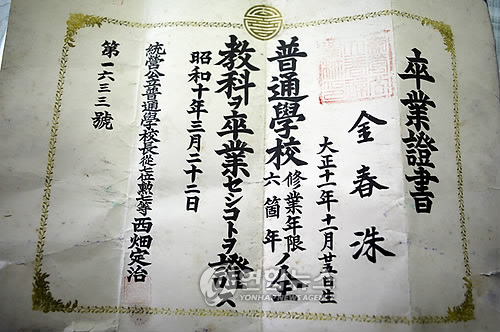 卒業證書
金春洙
大正十一年十一月廿五日生
普通學校修業年限六箇年ノ全
教科ヲ卒業セシコトヲ證ス
昭和十年三月二十二日
統營公立普通學校長從七位勲八等 西畑定治
第一六三三號
연합뉴스
YONHAP NEWS AGENCY